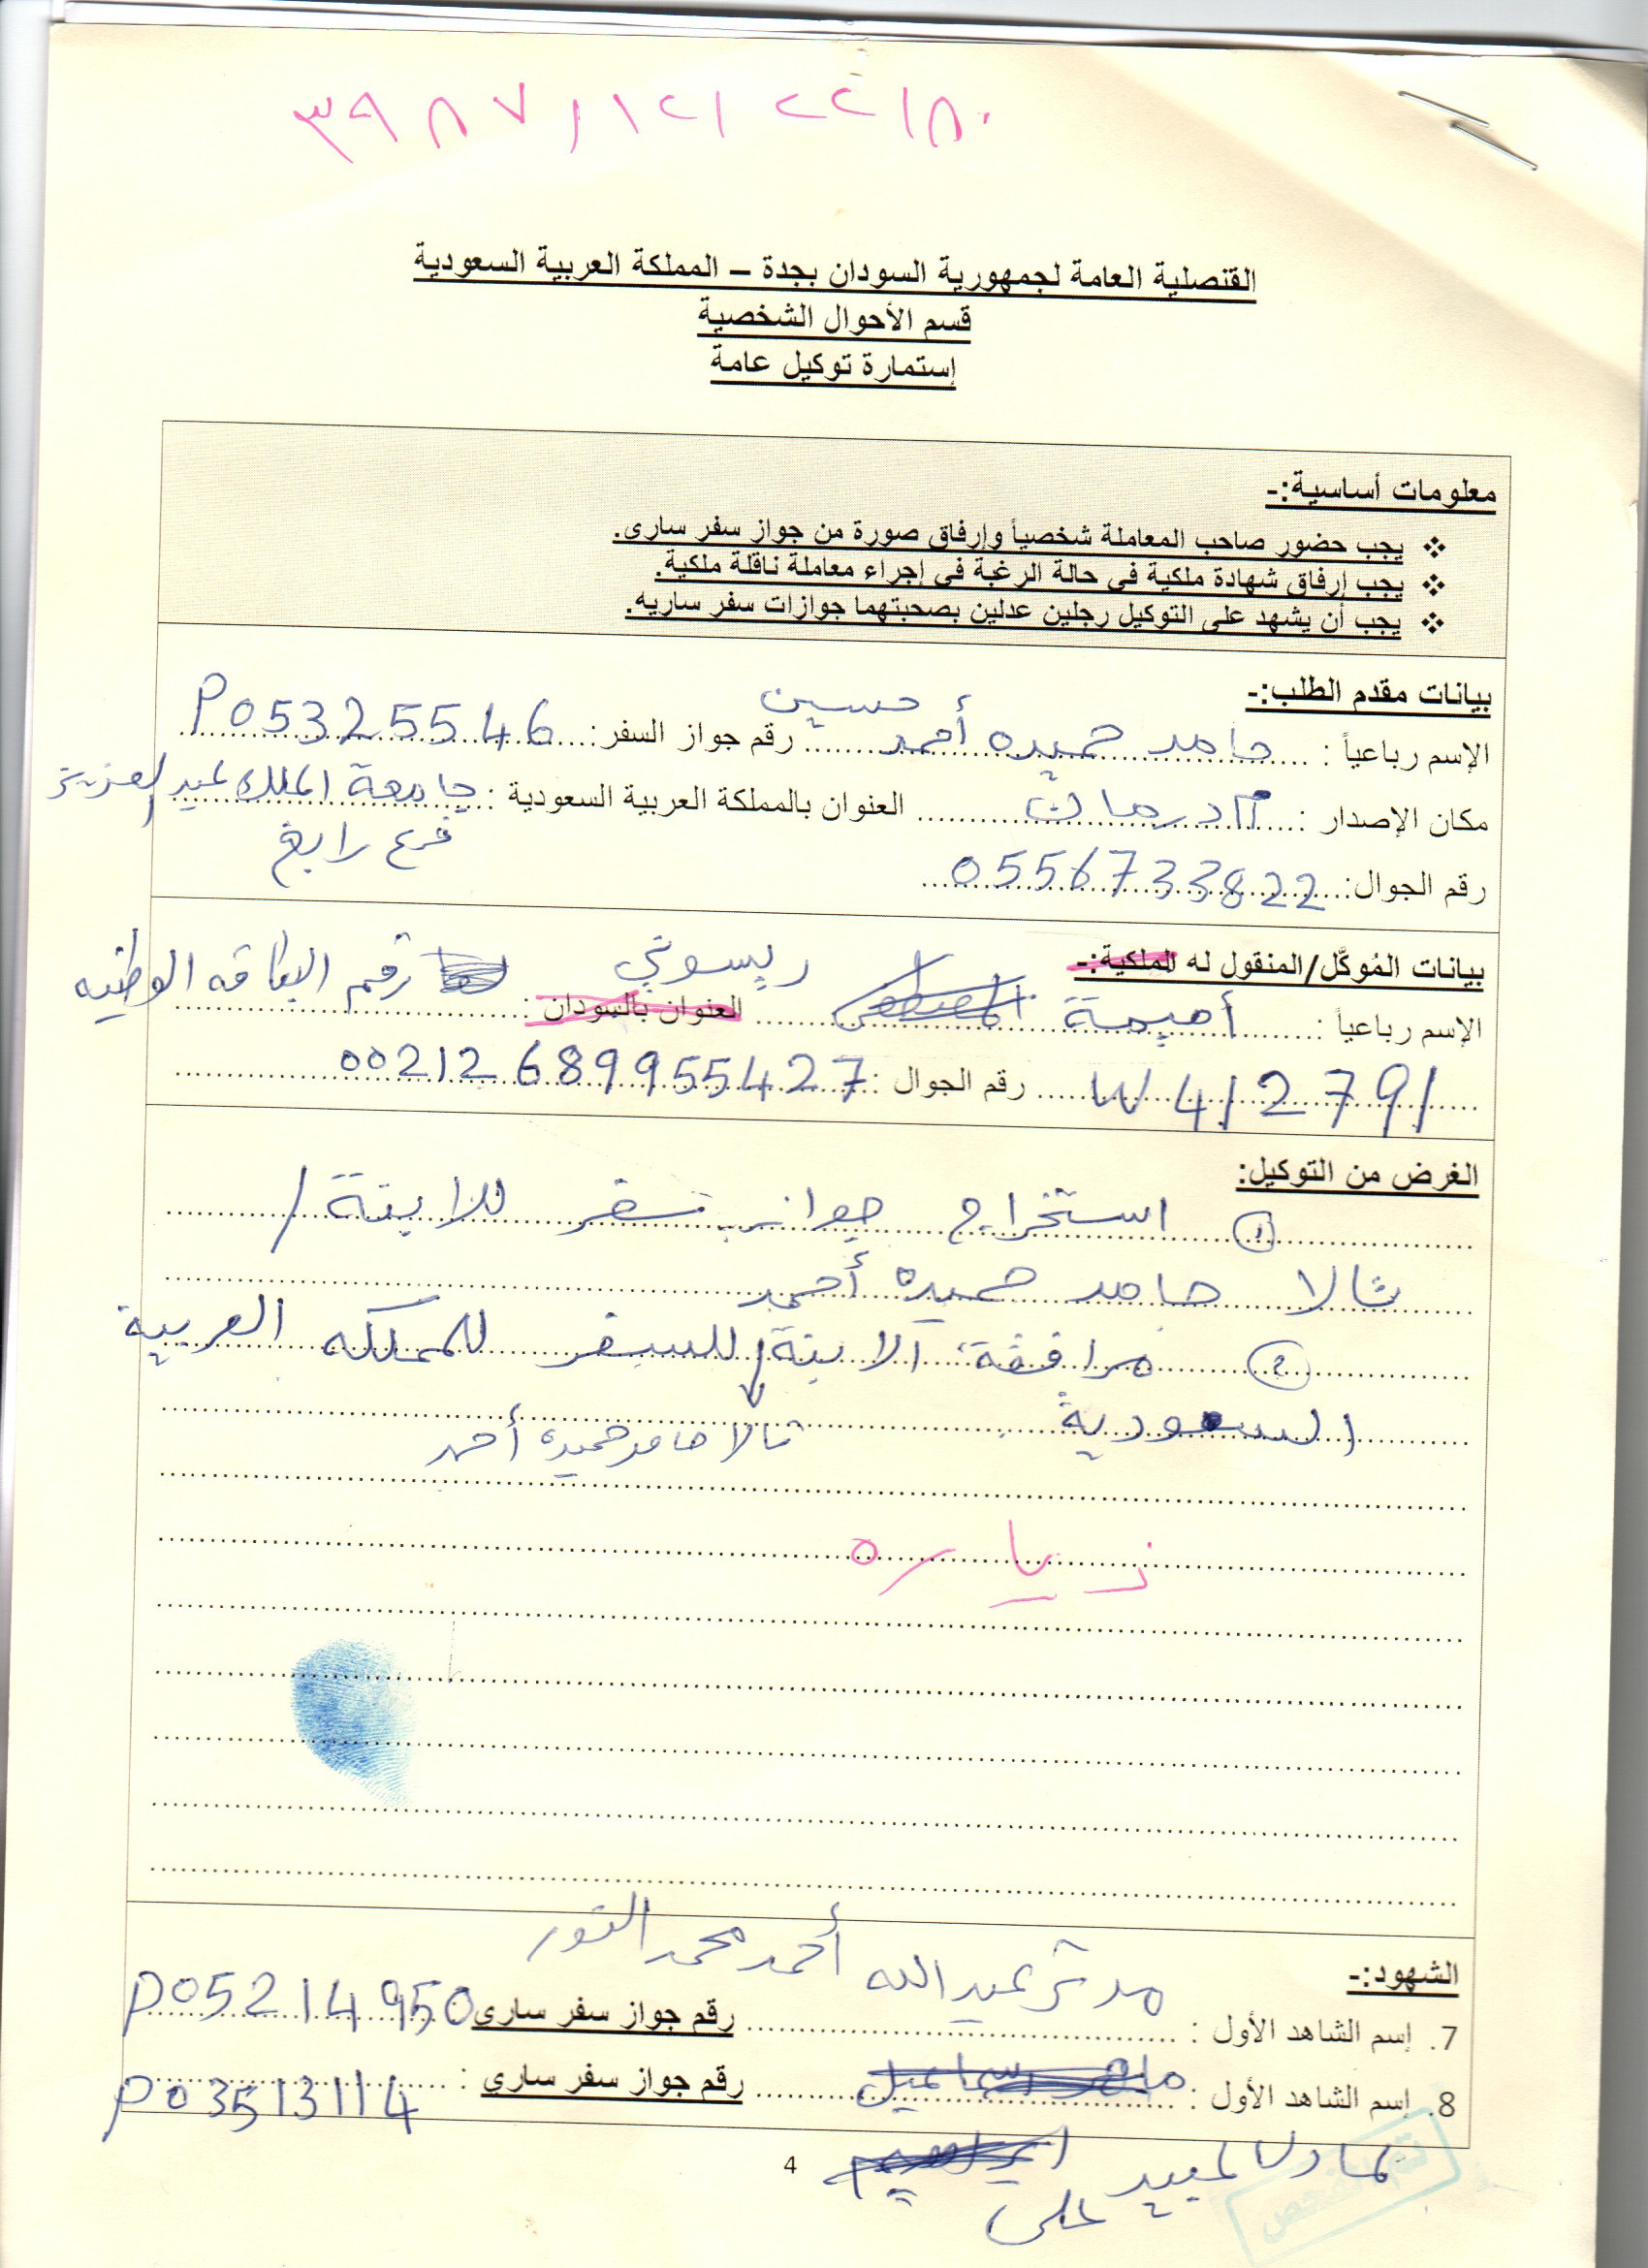 ٣٩٨٧/١٢/٢٢/٨٠
القنصلية العامة لجمهورية السودان بجدة – المملكة العربية السعودية
قسم الأحوال الشخصية
إستمارة توكيل عامة
معلومات أساسية:-
❖ يجب حضور صاحب المعاملة شخصياً وإرفاق صورة من جواز سفر سارى.
❖ يجب إرفاق شهادة ملكية فى حالة الرغبة فى إجراء معاملة ناقلة ملكية.
❖ يجب أن يشهد على التوكيل رجلين عدلين بصحبتهما جوازات سفر ساريه.
بيانات مقدم الطلب:-
الإسم رباعياً : حامد حميده أحمد حسين رقم جواز السفر: P05325546
مكان الإصدار : امدرمان العنوان بالمملكة العربية السعودية : جامعة الملك عبد العزيز
فرع رابغ
رقم الجوال: 0556733822
بيانات المُوكَّل/المنقول له الملكية:-
الإسم رباعياً : أميمة ريسوني العنوان بالسودان : رقم البطاقه الوطنيه
W412791 رقم الجوال : 00212689955427
الغرض من التوكيل:
① استخراج جواز سفر للابنة /
تالا حامد حميده أحمد
② مرافقة الابنة للسفر للمملكه العربية
السعودية
تالا حامد حميده أحمد
زياره
الشهود:-
7. إسم الشاهد الأول : مدثر عبد الله أحمد محمد النور رقم جواز سفر سارى P05214950
8. إسم الشاهد الأول : رقم جواز سفر ساري : P03513114
عادل عبيد على
4
تم الفحص